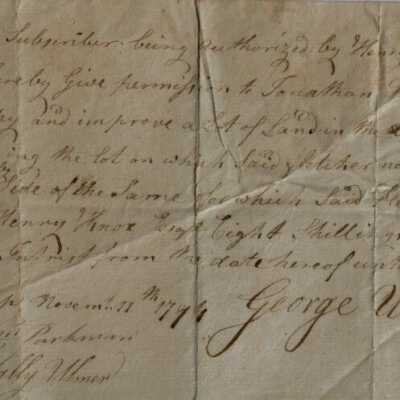 Subscriber being authorized by Henry
hereby Give permission to Jonathan
and improve a Lot of Land in the
the lot on which said fletcher
Side of the Same for which Said
Henry Knox Esqr Eight Shillings
Intrest from the date hereof
Novemr 11th 1794 George U
Parkman
Ulmer